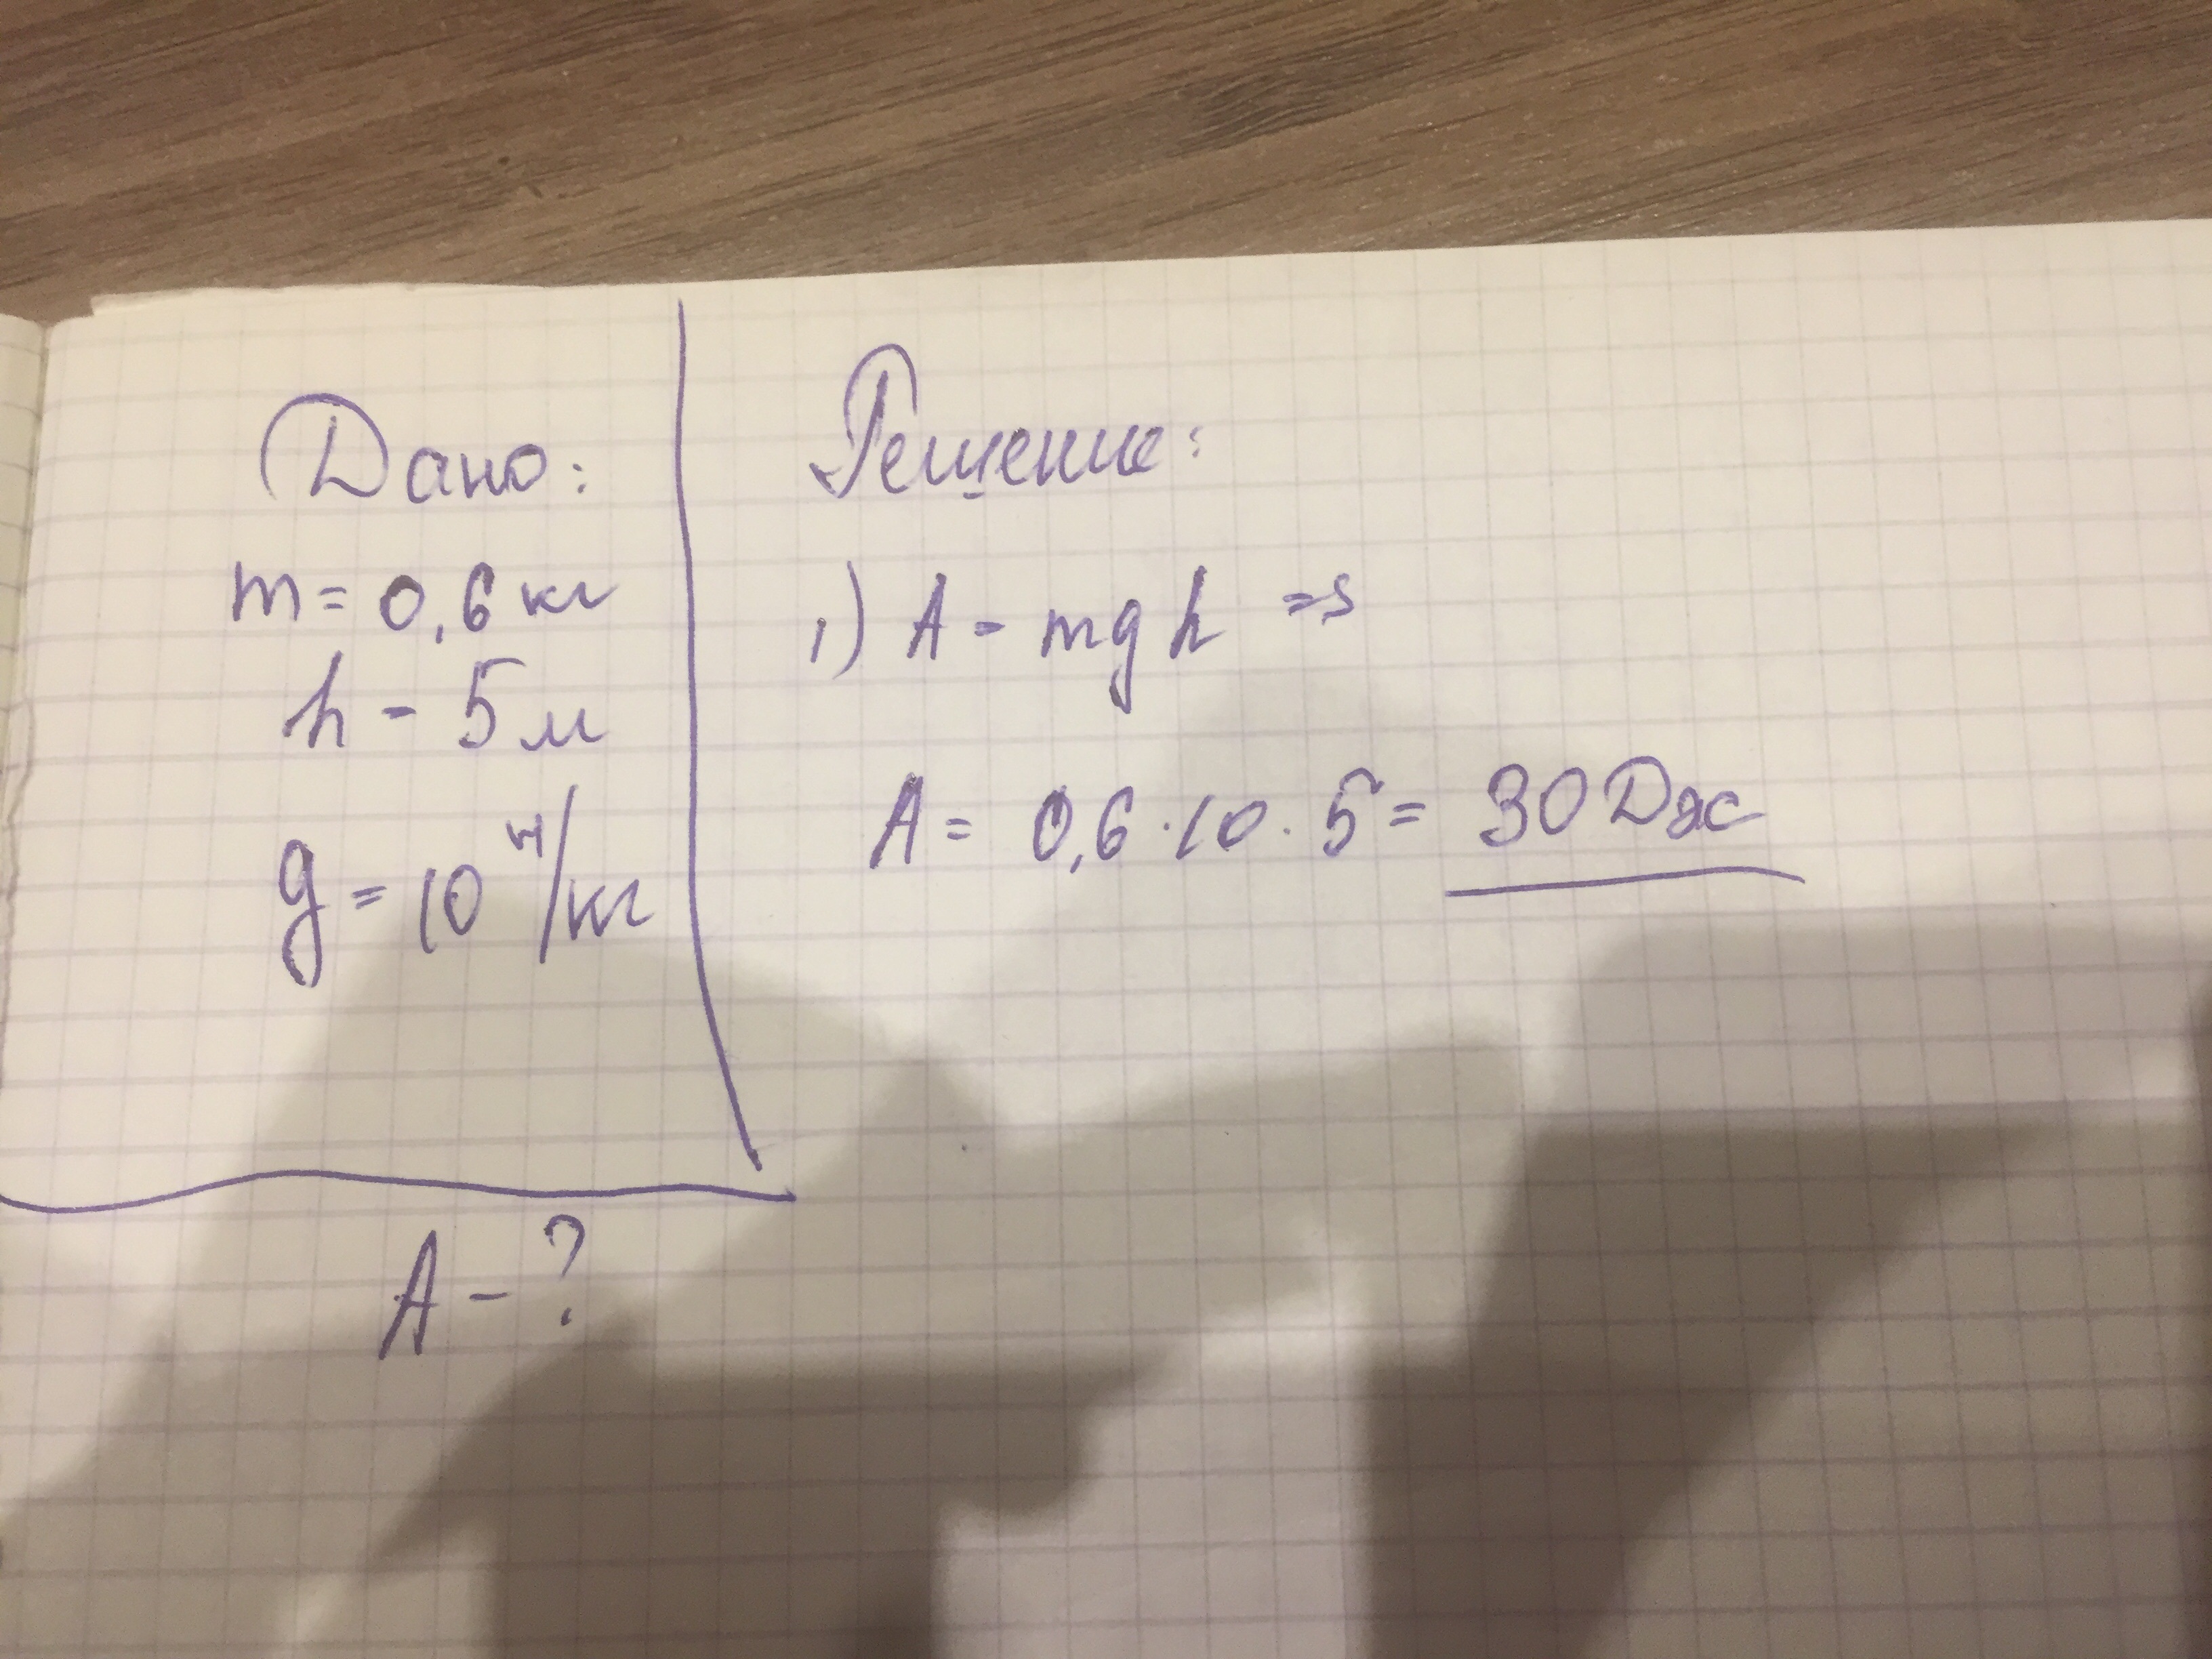 Дано:
m = 0,6 кг
h - 5 м
g = 10 Н/кг
A - ?
Решение:
1) A - mgh =>
A = 0,6 · 10 · 5 = 30 Дж